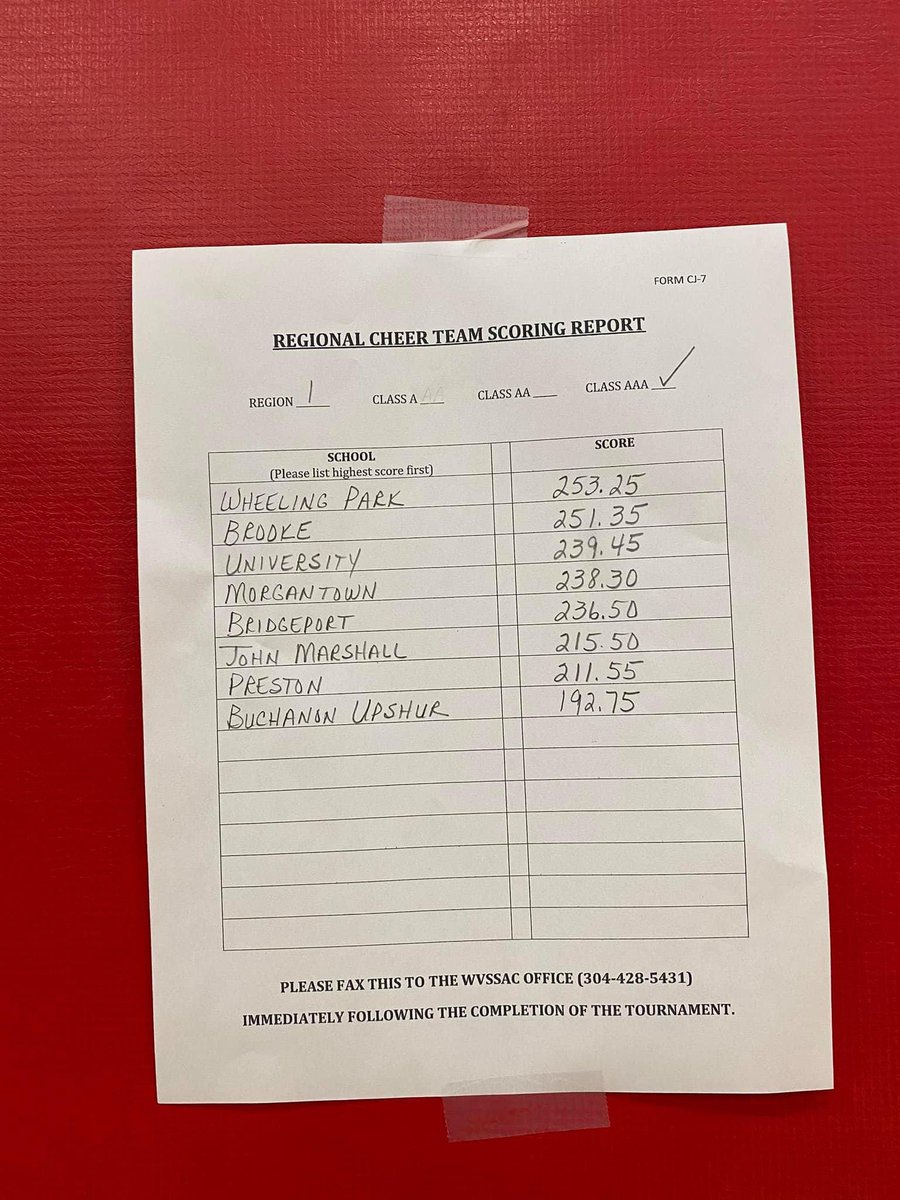 FORM CJ-7
REGIONAL CHEER TEAM SCORING REPORT
REGION 1 CLASS A ___ CLASS AA ___ CLASS AAA ✓
SCHOOL SCORE
(Please list highest score first)
WHEELING PARK 253.25
BROOKE 251.35
UNIVERSITY 239.45
MORGANTOWN 238.30
BRIDGEPORT 236.50
JOHN MARSHALL 215.50
PRESTON 211.55
BUCHANON UPSHUR 192.75
PLEASE FAX THIS TO THE WVSSAC OFFICE (304-428-5431)
IMMEDIATELY FOLLOWING THE COMPLETION OF THE TOURNAMENT.